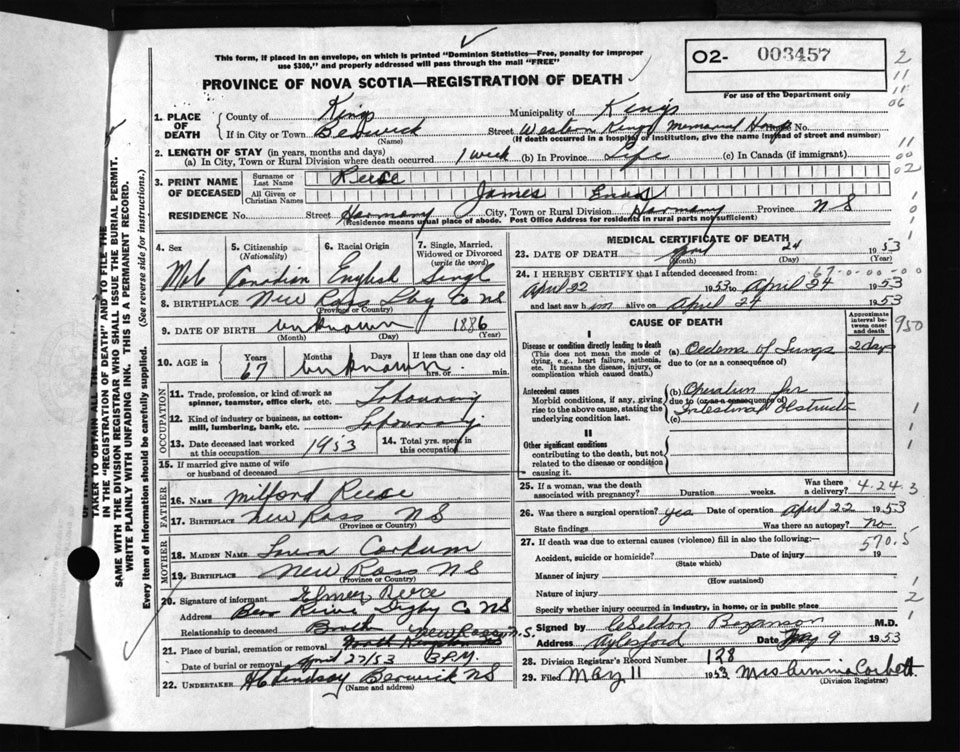 This form, if placed in an envelope, on which is printed "Dominion Statistics—Free, penalty for improper
use $300," and properly addressed will pass through the mail "FREE"
O2- 003457
For use of the Department only
PROVINCE OF NOVA SCOTIA—REGISTRATION OF DEATH
2
11
11
06
11
00
02
1. PLACE OF DEATH
County of Kings Municipality of Kings
If in City or Town Berwick Street Western Kings Memorial Hosp No.
(Name) (If death occurred in a hospital or institution, give the name instead of street and number)
2. LENGTH OF STAY (in years, months and days)
(a) In City, Town or Rural Division where death occurred 1 week (b) In Province Life (c) In Canada (if immigrant)
3. PRINT NAME OF DECEASED
Surname or Last Name Reece
All Given or Christian Names James
RESIDENCE No. Street Harmony City, Town or Rural Division Harmony Province NS
(Residence means usual place of abode. Post Office Address for residents in rural parts not sufficient)
4. Sex 5. Citizenship (Nationality) 6. Racial Origin 7. Single, Married, Widowed or Divorced (write the word)
Male Canadian English Single
8. BIRTHPLACE New Ross Co NS
(Province or Country)
9. DATE OF BIRTH unknown 1886
(Month) (Day) (Year)
10. AGE in Years Months Days If less than one day old
67 unknown hrs. or min.
OCCUPATION
11. Trade, profession, or kind of work as spinner, teamster, office clerk, etc. Labouring
12. Kind of industry or business, as cotton-mill, lumbering, bank, etc. Labouring
13. Date deceased last worked at this occupation 1953 14. Total yrs. spent in this occupation
15. If married give name of wife or husband of deceased
FATHER
16. NAME Milford Reece
17. BIRTHPLACE New Ross NS
(Province or Country)
MOTHER
18. MAIDEN NAME Corkum
19. BIRTHPLACE New Ross NS
(Province or Country)
20. Signature of informant Elmer Reece
Address Bear River Digby Co NS
Relationship to deceased Brother
21. Place of burial, cremation or removal New Ross N.S.
Date of burial or removal April 27/53 3 P.M.
22. UNDERTAKER H C Lindsay Berwick NS
(Name and address)
MEDICAL CERTIFICATE OF DEATH
23. DATE OF DEATH April 24 1953
(Month) (Day)
24. I HEREBY CERTIFY that I attended deceased from: 67-0-00-00
April 22 1953 to April 24 1953
and last saw him alive on April 24 1953
CAUSE OF DEATH
Approximate interval between onset and death
950
I
Disease or condition directly leading to death
(This does not mean the mode of dying, e.g., heart failure, asthenia, etc. It means the disease, injury, or complication which caused death.)
(a) Oedema of Lungs 2 days
due to (or as a consequence of)
Antecedent causes
Morbid conditions, if any, giving rise to the above cause, stating the underlying condition last.
(b) Operation for
due to (or as a consequence of)
Intestinal Obstruction
(c)
II
Other significant conditions
contributing to the death, but not related to the disease or condition causing it.
25. If a woman, was the death associated with pregnancy? Duration weeks. Was there a delivery? 4.24.3
26. Was there surgical operation? yes Date of operation April 22 1953
State findings Was there an autopsy? No
27. If death was due to external causes (violence) fill in also the following:— 570.5
Accident, suicide or homicide? Date of injury 19
(State which)
Manner of injury
(How sustained)
Nature of injury
Specify whether injury occurred in industry, in home, or in public place
Signed by Bezanson M.D.
Address Aylesford Date May 9 1953
28. Division Registrar's Record Number 128
29. Filed May 11 1953 Mrs Corbett
(Division Registrar)
TAKER TO OBTAIN ALL THE
IN THE "REGISTRATION OF DEATH" AND TO FILE THE
SAME WITH THE DIVISION REGISTRAR WHO SHALL ISSUE THE BURIAL PERMIT.
WRITE PLAINLY WITH UNFADING INK. THIS IS A PERMANENT RECORD.
Every item of Information should be carefully supplied. (See reverse side for instructions.)